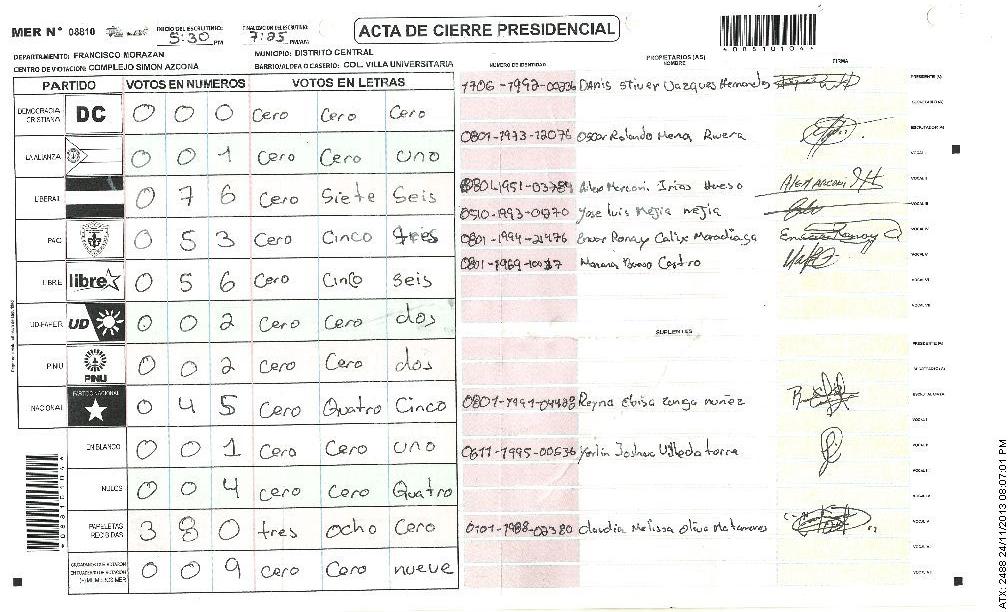 MER N° 08810 INICIO DEL ESCRUTINIO: 5:30 PM FINALIZACION DEL ESCRUTINIO: 7:25 PM/AM
ACTA DE CIERRE PRESIDENCIAL
DEPARTAMENTO: FRANCISCO MORAZAN MUNICIPIO: DISTRITO CENTRAL
CENTRO DE VOTACION: COMPLEJO SIMON AZCONA BARRIO/ALDEA O CASERIO: COL. VILLA UNIVERSITARIA
NUMERO DE IDENTIDAD PROPIETARIOS (AS) NOMBRE FIRMA
PARTIDO VOTOS EN NUMEROS VOTOS EN LETRAS
DEMOCRACIA CRISTIANA DC 0 0 0 Cero Cero Cero
LA ALIANZA 0 0 1 Cero Cero uno
LIBERAL 0 7 6 Cero Siete Seis
PAC 0 5 3 Cero Cinco tres
LIBRE libre 0 5 6 Cero Cinco seis
UD-FAPER UD 0 0 2 Cero Cero dos
PINU PINU 0 0 2 Cero Cero dos
NACIONAL PARTIDO NACIONAL 0 4 5 Cero Quatro Cinco
EN BLANCO 0 0 1 Cero Cero uno
NULOS 0 0 4 Cero Cero Quatro
PAPELETAS RECIBIDAS 3 8 0 tres ocho Cero
0 0 9 Cero Cero nueve
1706-1992-00236 Danis Stiver Vazques Hernandez PRESIDENTE (A)
SECRETARIO (A)
0801-1973-12076 Oscar Rolando Mena Rivera ESCRUTADOR (A)
VOCAL I
0801-1951-03789 Alex Marconi Irias Hueso VOCAL II
0510-1993-01270 Yose Luis Mejia mejia VOCAL III
0801-1994-21476 Enoar Ronay Calix Maradiaga VOCAL IV
0801-1969-10037 Mariana Bueso Castro VOCAL V
VOCAL VI
VOCAL VII
SUPLENTES
PRESIDENTE (A)
SECRETARIO (A)
0801-1991-04488 Reyna Elvisa Zunga nuñez
VOCAL I
0611-1995-00536 Yorlin Joshua Villeda torre VOCAL II
VOCAL III
0101-1988-02380 Claudia Melissa Oliva Matamoros
VOCAL VI
ATX: 2488 24/11/2013 08:07:01 PM